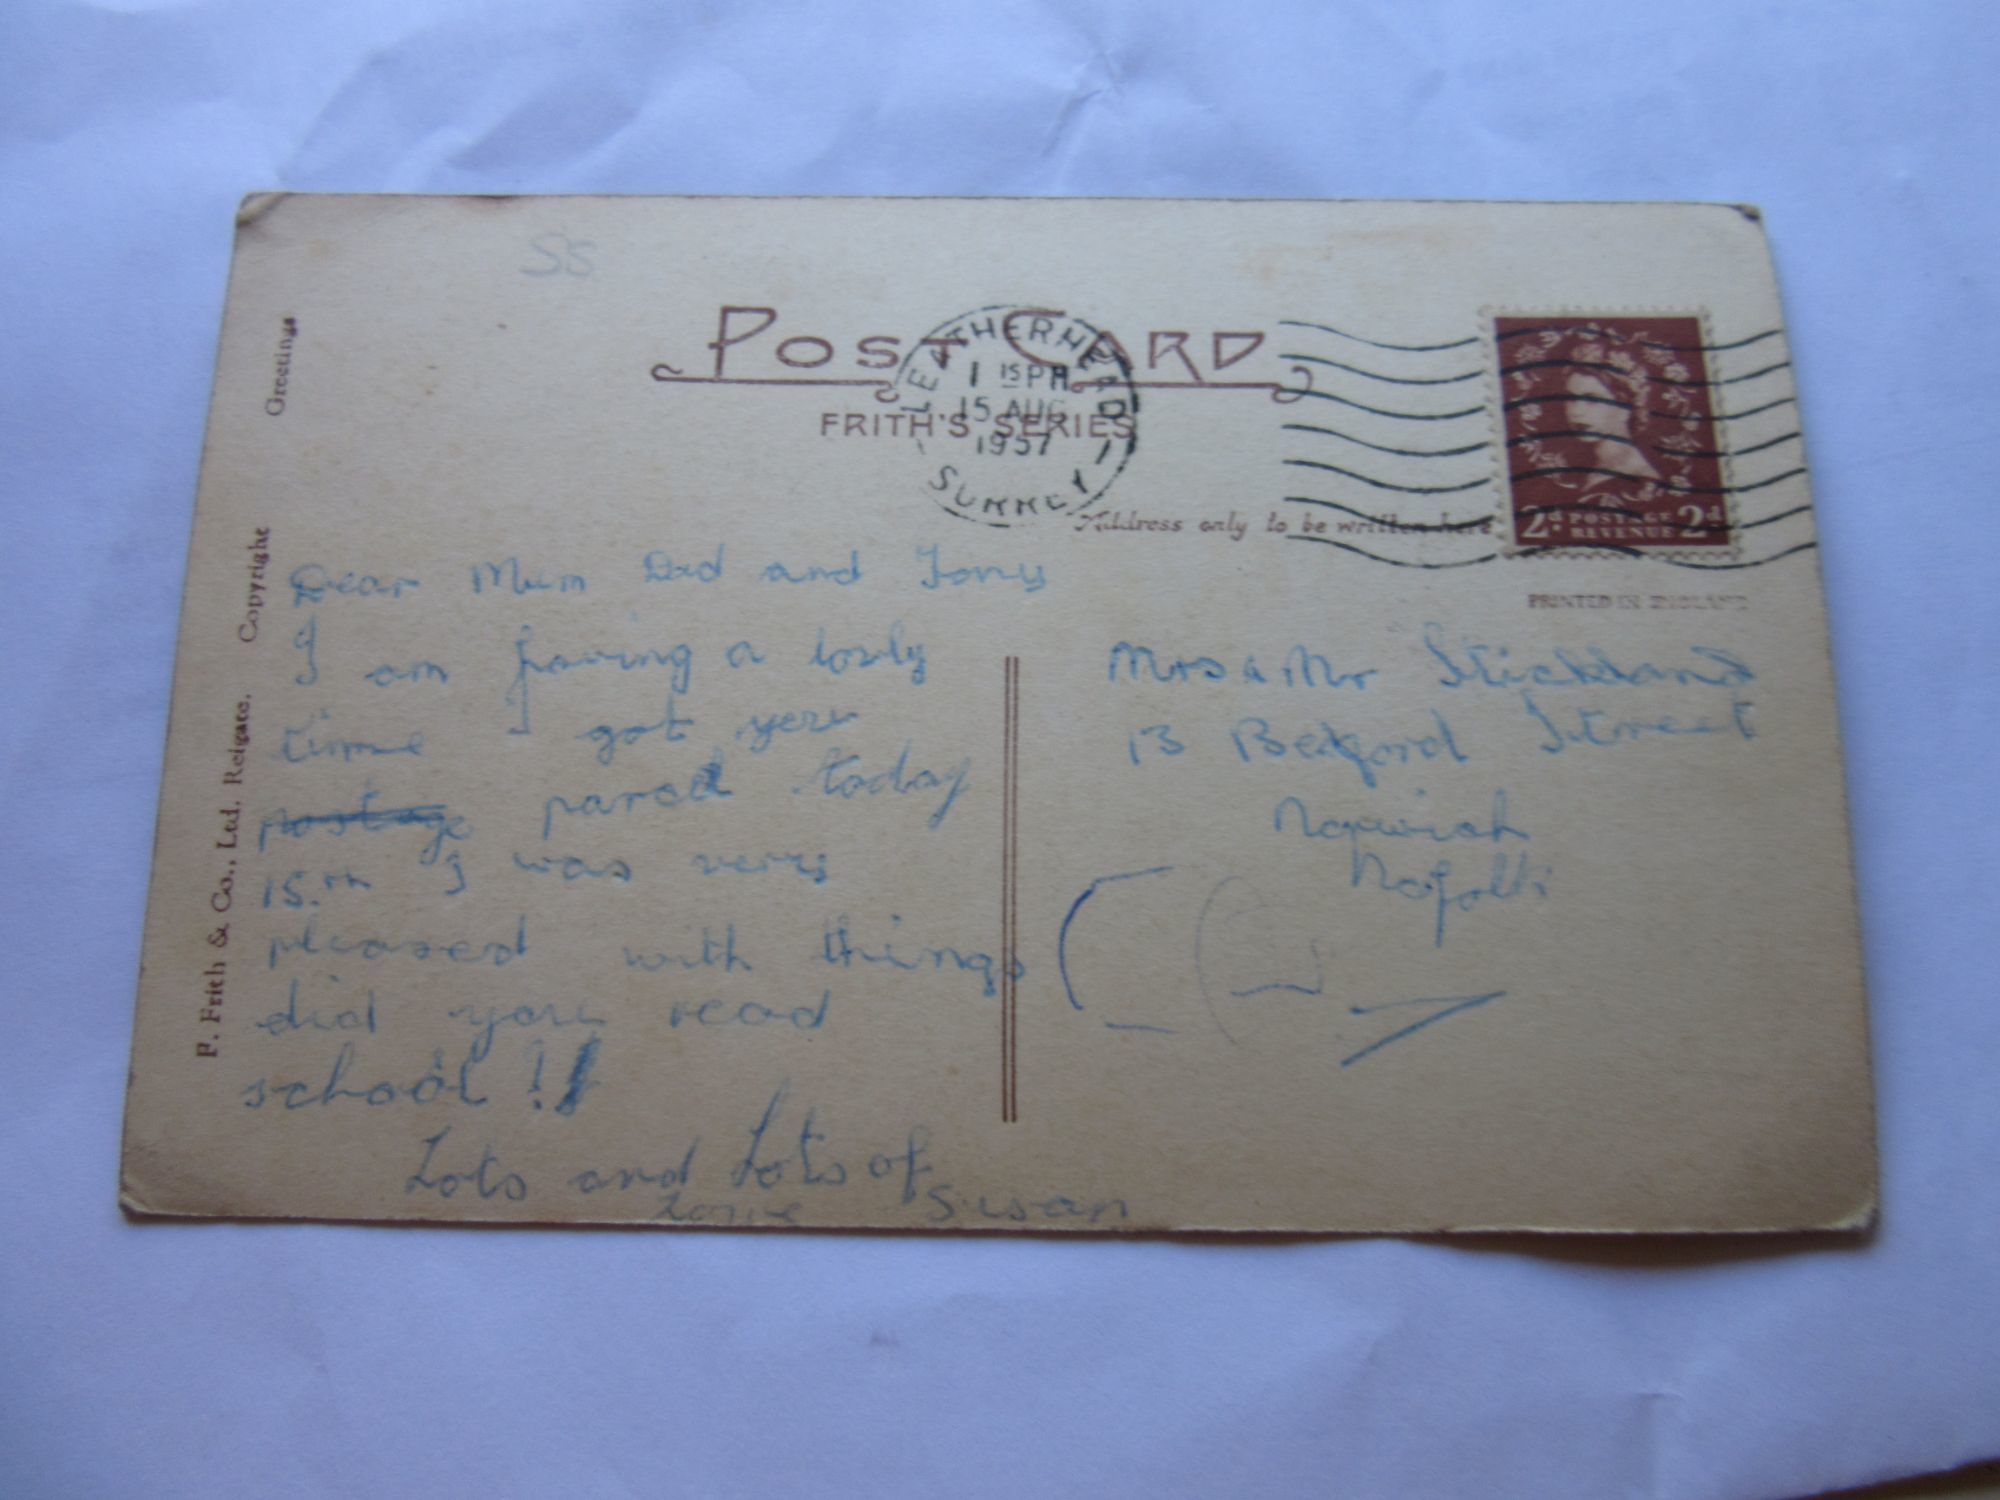 SS
POST CARD
FRITH'S SERIES
LEATHERHEAD
1 15 PM
15 AUG
1957
SURREY
Address only to be written here
2d POSTAGE 2d
REVENUE
PRINTED IN ENGLAND
F. Frith & Co., Ltd. Reigate. Copyright Greetings
Dear Mum Dad and Tony
I am having a lovly
time I got your
postage parcel today
15.th I was very
pleased with things
did you read
school !!
Lots and Lots of
Love Susan
Mrs & Mr Stickland
13 Bedford Street
Norwich
Nofolk